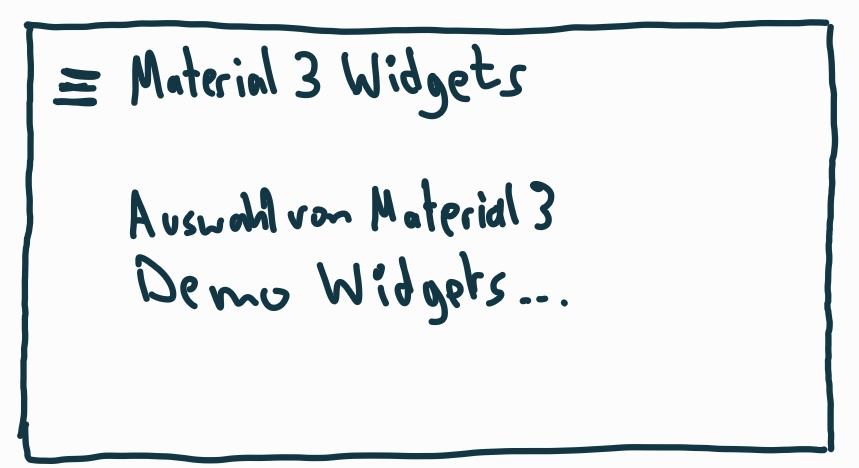 Material 3 Widgets
Auswahl von Material 3
Demo Widgets...